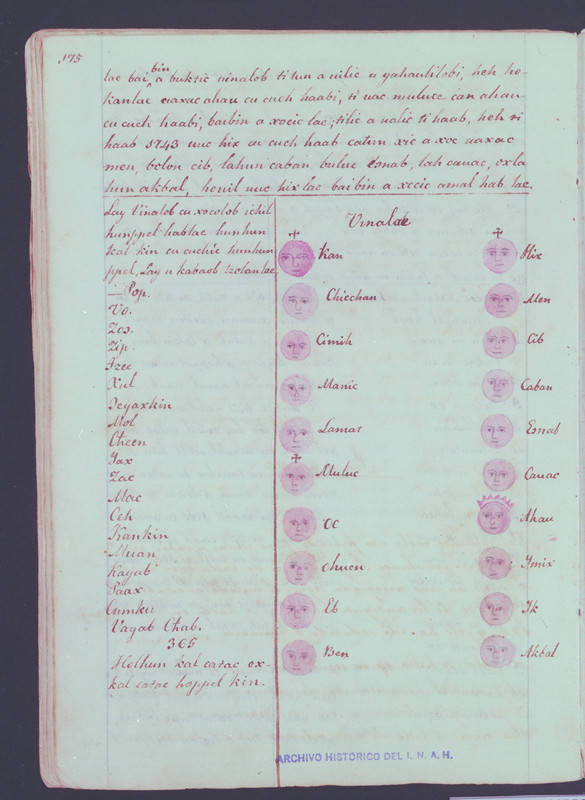 175
bin
lac bai a buktic uinalob ti tun a uilic u yahaulilobi, heh ho-
kanlac uaxac ahau cu cuch haabi, ti uac muluce can ahau
cu cuch haabi, baibin a xocic lac; tilic a ualic ti haab, heh ri
haab 1743 uuc hix cu cuch haab catun xic a xoc uaxac
men, bolon cib, lahun caban buluc Esnab, lah cauac, oxla
hun akbal, henil uuc hix lac baibin a xocic amal hab lac.
Lay Vinalob cu xocolob ichil
hunppel hablac hunhun
kal kin cu cuchic hunhun
ppel, Lay u kabaob tzolanlac
Pop.
Vo.
Zos.
Zip
Tzec
Xul
Deyaxkin
Mol
Cheen
Yax
Zac
Mac
Ceh
Kankin
Muan
Kayab
Paax
Cumku
Vayab Chab.
365
Helhun kal catac ox-
kal catac hoppel kin.
Vinalob
Kan
Chicchan
Cimih
Manic
Lamat
Muluc
OC
chuen
Eb
Ben
Hix
Men
Cib
Caban
Esnab
Cauac
Ahau
Ymix
Ik
Akbal
ARCHIVO HISTORICO DEL I. N. A. H.